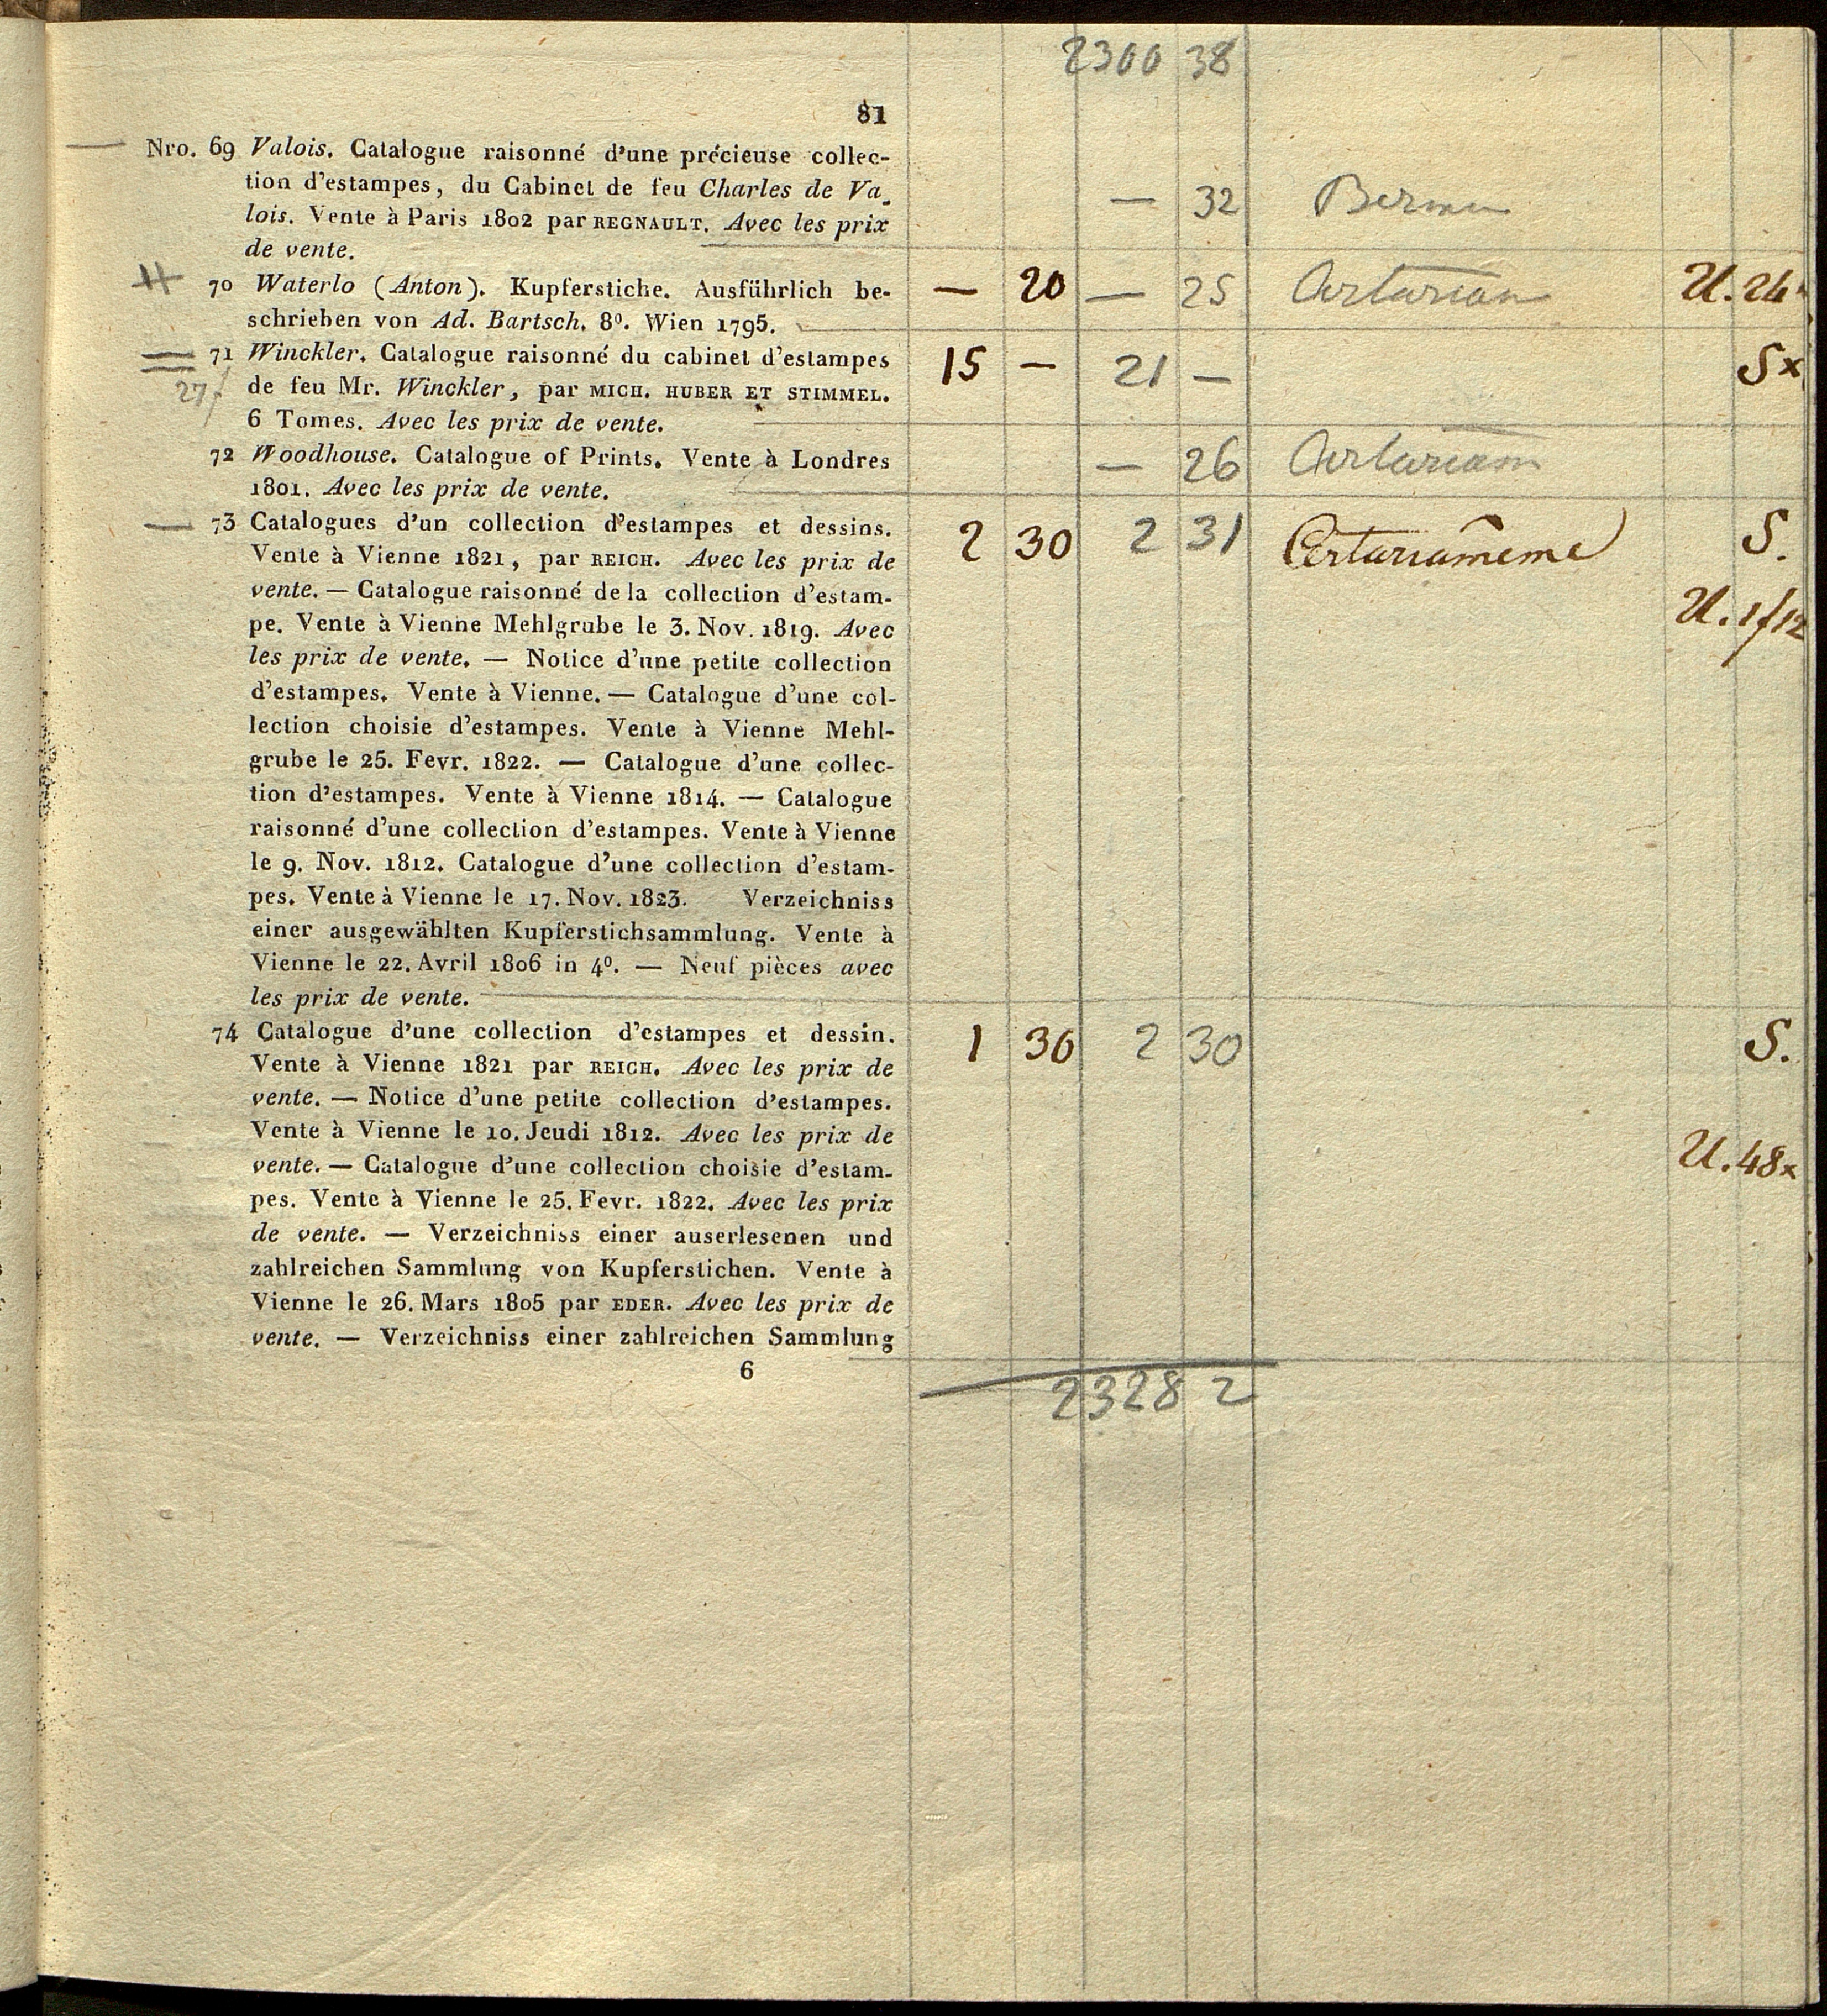 2300 38
81
— Nro. 69 Valois. Catalogue raisonné d'une précieuse collec-
tion d'estampes, du Cabinet de feu Charles de Va-
lois. Vente à Paris 1802 par REGNAULT. Avec les prix — 32
de vente.
70 Waterlo (Anton). Kupferstiche. Ausführlich be- — 20 — 25 U. 24
schrieben von Ad. Bartsch. 8º. Wien 1795.
71 Winckler. Catalogue raisonné du cabinet d'estampes 15 — 21 — Sx
27 de feu Mr. Winckler, par MICH. HUBER ET STIMMEL.
6 Tomes. Avec les prix de vente.
72 Woodhouse. Catalogue of Prints. Vente à Londres — 26
1801. Avec les prix de vente.
— 73 Catalogues d'un collection d'estampes et dessins. 2 30 2 31 S.
Vente à Vienne 1821, par REICH. Avec les prix de
vente. — Catalogue raisonné de la collection d'estam- U. 1f12
pe. Vente à Vienne Mehlgrube le 3. Nov. 1819. Avec
les prix de vente. — Notice d'une petite collection
d'estampes. Vente à Vienne. — Catalogue d'une col-
lection choisie d'estampes. Vente à Vienne Mehl-
grube le 25. Fevr. 1822. — Catalogue d'une collec-
tion d'estampes. Vente à Vienne 1814. — Catalogue
raisonné d'une collection d'estampes. Vente à Vienne
le 9. Nov. 1812. Catalogue d'une collection d'estam-
pes. Vente à Vienne le 17. Nov. 1823. Verzeichniss
einer ausgewählten Kupferstichsammlung. Vente à
Vienne le 22. Avril 1806 in 4º. — Neuf pièces avec
les prix de vente.
74 Catalogue d'une collection d'estampes et dessin. 1 36 2 30 S.
Vente à Vienne 1821 par REICH. Avec les prix de
vente. — Notice d'une petite collection d'estampes.
Vente à Vienne le 10. Jeudi 1812. Avec les prix de
vente. — Catalogue d'une collection choisie d'estam- U. 48x
pes. Vente à Vienne le 25. Fevr. 1822. Avec les prix
de vente. — Verzeichniss einer auserlesenen und
zahlreichen Sammlung von Kupferstichen. Vente à
Vienne le 26. Mars 1805 par EDER. Avec les prix de
vente. — Verzeichniss einer zahlreichen Sammlung
6
2328 2